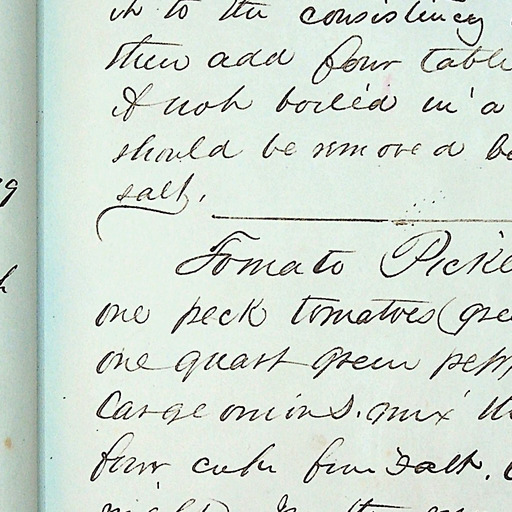 it to the consistency
then add four table
if not boiled in a
should be removed be
salt.
Tomato Pickle
one peck tomatoes (gree
one quart green pepp
large onions. mix th
four cups fine salt.
night) In the